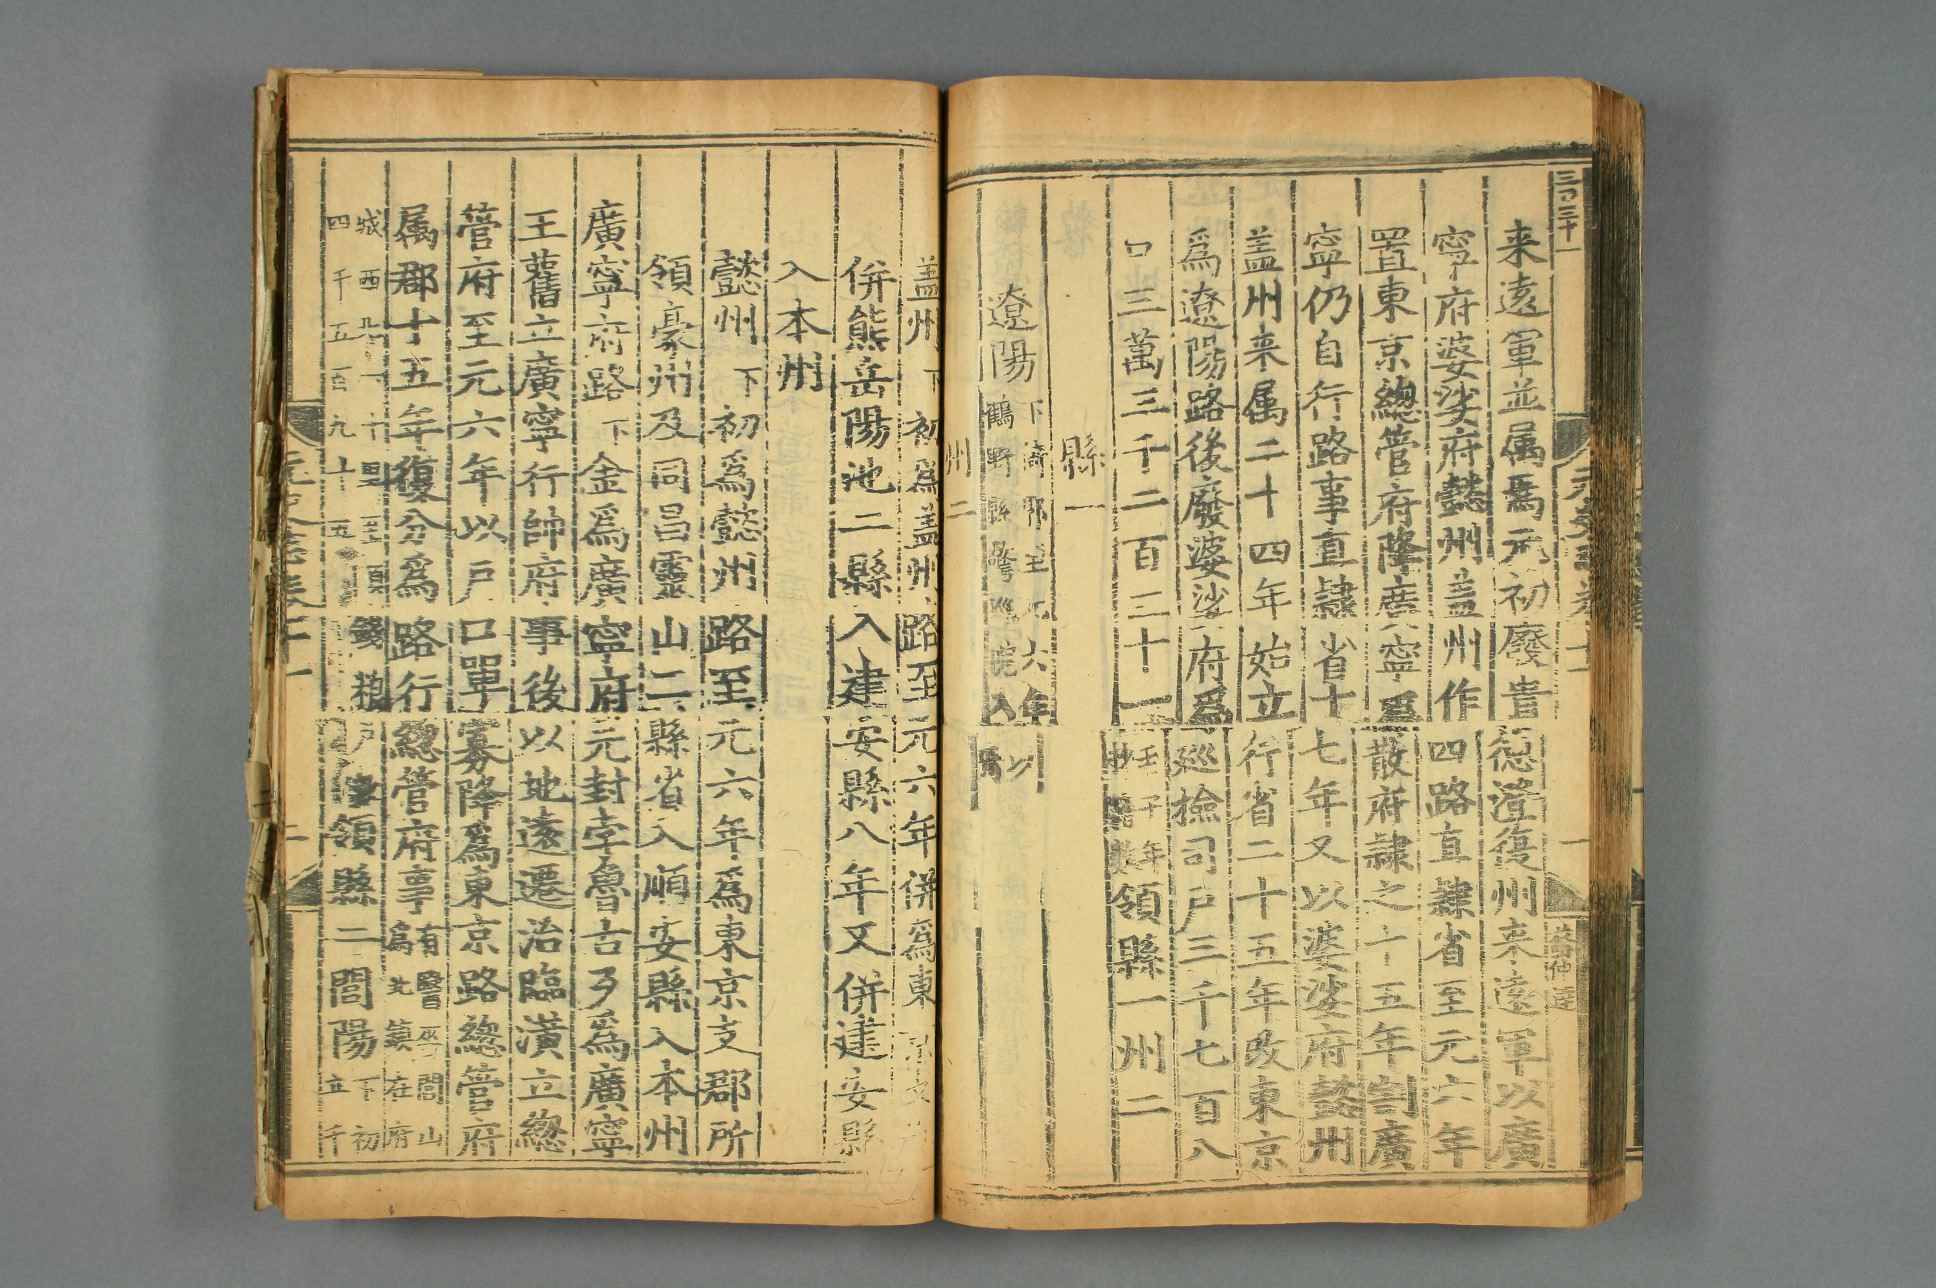 来遠軍並属焉元初廢貴德澄復州来遠軍以廣
寧府婆娑府懿州盖州作四路直隸省至元六年
置東京總管府降廣寧爲散府隸之十五年割廣
寧仍自行路事直隸省十七年又以婆娑府懿州
盖州来属二十四年始立行省二十五年改東京
爲遼陽路後廢婆娑府爲巡檢司戶三千七百八
口三萬三千二百三十一壬子年抄籍數領縣一州二
縣一
遼陽下倚郭至元六年以
鶴野縣警巡院入焉
州二
盖州下初爲盖州路至元六年併爲東京支
併熊岳陽池二縣入建安縣八年又併建安縣
入本州
懿州下初爲懿州路至元六年爲東京支郡所
領豪州及同昌靈山二縣省入順安縣入本州
廣寧府路下金爲廣寧府元封孛魯古歹爲廣寧
王舊立廣寧行帥府事後以地遠遷治臨潢立緫
管府至元六年以戶口單寡降爲東京路緫管府
属郡十五年復分爲路行緫管府事有醫巫閭山
爲北鎮在府
城西北一十里至順錢粮戶
四千五百九十五
領縣二閭陽下初
立千